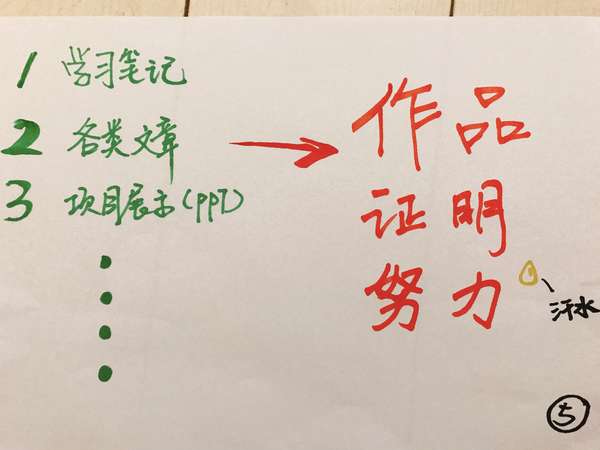 1 学习笔记
2 各类文章
3 项目展示(PPT)
作品
证明
努力
汗水
5